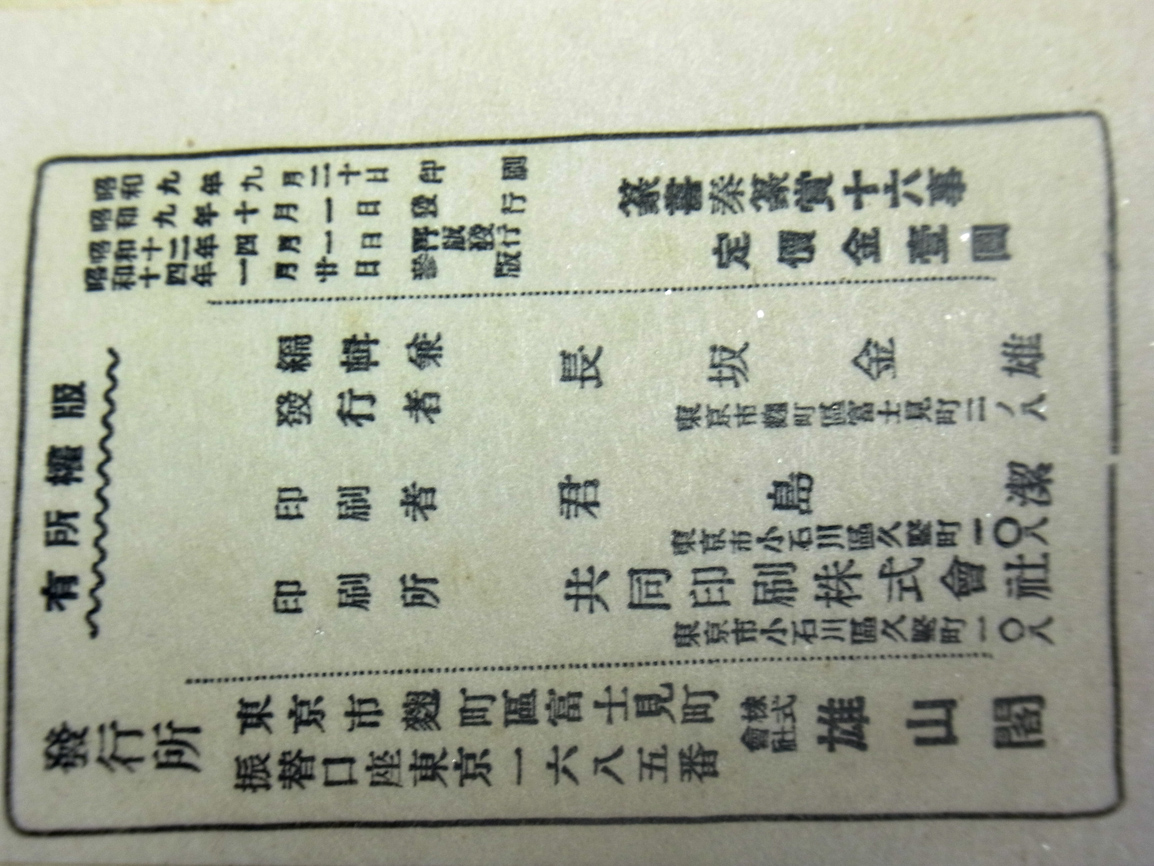 版權所有
昭和九年九月二十日印刷
昭和九年十月一日發行
昭和十二年四月一日再版發行
昭和十四年一月廿日參版
篆書秦篆賞十六事
定價金壹圓
編輯兼
發行者 長坂金雄
東京市麴町區富士見町二ノ八
印刷者 君島潔
東京市小石川區久堅町一〇八
印刷所 共同印刷株式會社
東京市小石川區久堅町一〇八
發行所
東京市麴町區富士見町
振替口座東京一六八五番
株式會社 雄山閣